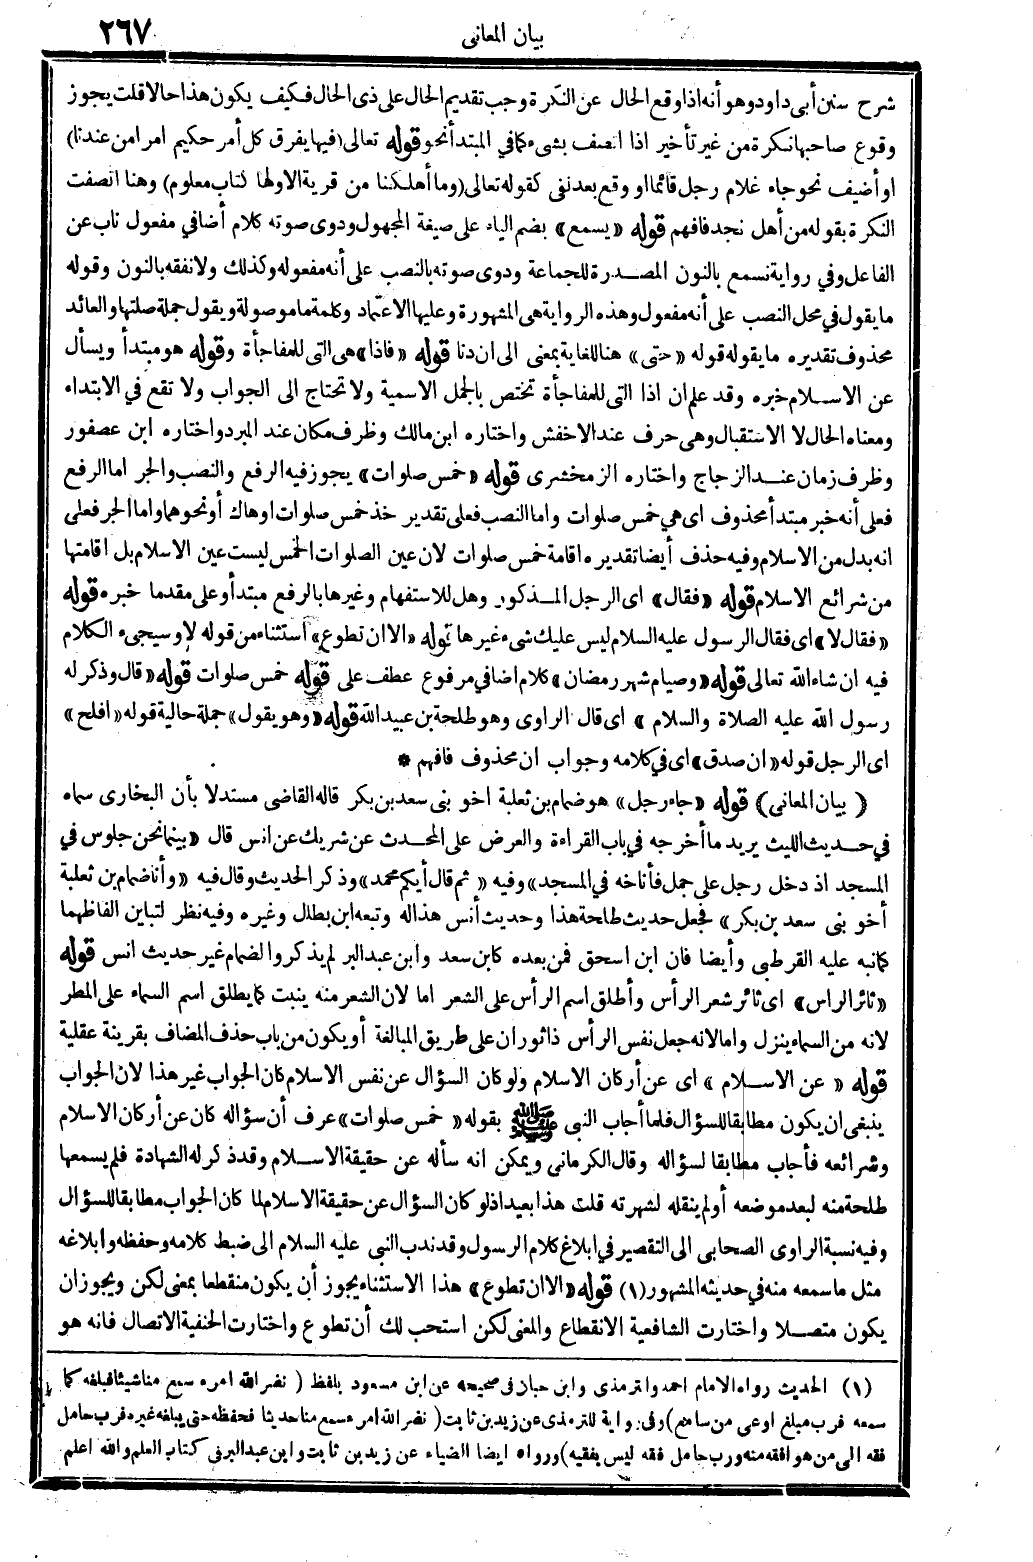 بيان المعانى ٢٦٧
شرح سنن أبى داود وهو أنه اذا وقع الحال عن النكرة وجب تقديم الحال على ذى الحال فكيف يكون هذا حالا قلت يجوز
وقوع صاحبها نكرة من غير تأخير اذا اتصف بشىء كما في المبتدأ نحو قوله تعالى (فيها يفرق كل أمر حكيم امرا من عندنا)
او أضيف نحو جاء غلام رجل قائما او وقع بعد نفى كقوله تعالى (وما أهلكنا من قرية الا ولها كتاب معلوم) وهنا اتصفت
النكرة بقوله من أهل نجد فافهم قوله «يسمع» بضم الياء على صيغة المجهول ودوى صوته كلام أضافي مفعول ناب عن
الفاعل وفي رواية نسمع بالنون المصدرة للجماعة ودوى صوته بالنصب على أنه مفعوله وكذلك ولا نفقه بالنون وقوله
ما يقول في محل النصب على أنه مفعول وهذه الرواية هى المشهورة وعليها الاعتماد وكلمة ما موصولة ويقول جملة صلتها والعائد
محذوف تقديره ما يقوله قوله «حتى» هنا للغاية بمعنى الى ان دنا قوله «فاذا» هى التى للمفاجأة وقوله هو مبتدأ ويسأل
عن الاسلام خبره وقد علم ان اذا التى للمفاجأة تختص بالجمل الاسمية ولا تحتاج الى الجواب ولا تقع في الابتداء
ومعناه الحال لا الاستقبال وهى حرف عند الاخفش واختاره ابن مالك وظرف مكان عند المبرد واختاره ابن عصفور
وظرف زمان عند الزجاج واختاره الزمخشرى قوله «خمس صلوات» يجوز فيه الرفع والنصب والجر اما الرفع
فعلى أنه خبر مبتدأ محذوف اى هي خمس صلوات واما النصب فعلى تقدير خذ خمس صلوات او هاك أو نحوهما واما الجر فعلى
انه بدل من الاسلام وفيه حذف أيضا تقديره اقامة خمس صلوات لان عين الصلوات الخمس ليست عين الاسلام بل اقامتها
من شرائع الاسلام قوله «فقال» اى الرجل المذكور وهل للاستفهام وغيرها بالرفع مبتدأ وعلى مقدما خبره قوله
«فقال لا» اى فقال الرسول عليه السلام ليس عليك شىء غيرها قوله «الا ان تطوع» استثناء من قوله لا وسيجىء الكلام
فيه ان شاء الله تعالى قوله «وصيام شهر رمضان» كلام اضافي مرفوع عطف على قوله خمس صلوات قوله «قال وذكر له
رسول الله عليه الصلاة والسلام» اى قال الراوى وهو طلحة بن عبيد الله قوله «وهو يقول» جملة حالية قوله «افلح»
اى الرجل قوله «ان صدق» اى في كلامه وجواب ان محذوف فافهم *
(بيان المعانى) قوله «جاء رجل» هو ضمام بن ثعلبة اخو بنى سعد بن بكر قاله القاضى مستدلا بأن البخارى سماه
في حديث الليث يريد ما أخرجه في باب القراءة والعرض على المحدث عن شريك عن انس قال «بينما نحن جلوس في
المسجد اذ دخل رجل على جمل فأناخه في المسجد» وفيه «ثم قال أيكم محمد» وذكر الحديث وقال فيه «وأنا ضمام بن ثعلبة
أخو بنى سعد بن بكر» فجعل حديث طلحة هذا وحديث أنس هذا له وتبعه ابن بطال وغيره وفيه نظر لتباين الفاظهما
كما نبه عليه القرطبى وأيضا فان ابن اسحق فمن بعده كابن سعد وابن عبد البر لم يذكروا لضمام غير حديث انس قوله
«ثائر الراس» اى ثائر شعر الرأس وأطلق اسم الرأس على الشعر اما لان الشعر منه ينبت كما يطلق اسم السماء على المطر
لانه من السماء ينزل واما لانه جعل نفس الرأس ذا ثوران على طريق المبالغة أو يكون من باب حذف المضاف بقرينة عقلية
قوله «عن الاسلام» اى عن أركان الاسلام ولو كان السؤال عن نفس الاسلام كان الجواب غير هذا لان الجواب
ينبغى ان يكون مطابقا للسؤال فلما أجاب النبى ﷺ بقوله «خمس صلوات» عرف أن سؤاله كان عن أركان الاسلام
وشرائعه فأجاب مطابقا لسؤاله وقال الكرمانى ويمكن انه سأله عن حقيقة الاسلام وقد ذكر له الشهادة فلم يسمعها
طلحة منه لبعد موضعه أو لم ينقله لشهرته قلت هذا بعيد اذ لو كان السؤال عن حقيقة الاسلام لما كان الجواب مطابقا للسؤال
وفيه نسبة الراوى الصحابى الى التقصير في ابلاغ كلام الرسول وقد ندب النبى عليه السلام الى ضبط كلامه وحفظه وابلاغه
مثل ما سمعه منه في حديثه المشهور (١) قوله «الا ان تطوع» هذا الاستثناء يجوز أن يكون منقطعا بمعنى لكن ويجوز ان
يكون متصلا واختارت الشافعية الانقطاع والمعنى لكن استحب لك أن تطوع واختارت الحنفية الاتصال فانه هو
(١) الحديث رواه الامام احمد والترمذى وابن حبان فى صحيحه عن ابن مسعود بلفظ (نضر الله امره سمع منا شيئا فبلغه كما
سمعه فرب مبلغ اوعى من سامع) وفى رواية للترمذى عن زيد بن ثابت (نضر الله امره سمع منا حديثا فحفظه حتى يبلغه غيره فرب حامل
فقه الى من هو افقه منه ورب حامل فقه ليس بفقيه) ورواه ايضا الضياء عن زيد بن ثابت وابن عبد البر فى كتاب العلم والله اعلم